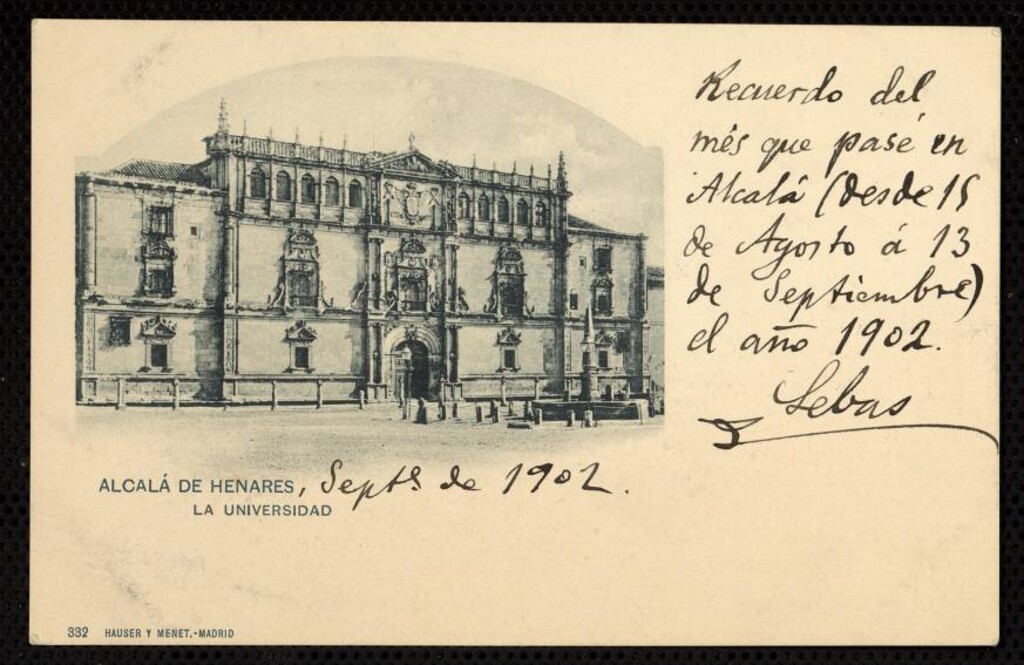 Recuerdo del
més que pasé en
Alcalá (desde 15
de Agosto á 13
de Septiembre)
el año 1902.
Sebas
ALCALÁ DE HENARES, Septe. de 1902.
LA UNIVERSIDAD
332 HAUSER Y MENET.-MADRID